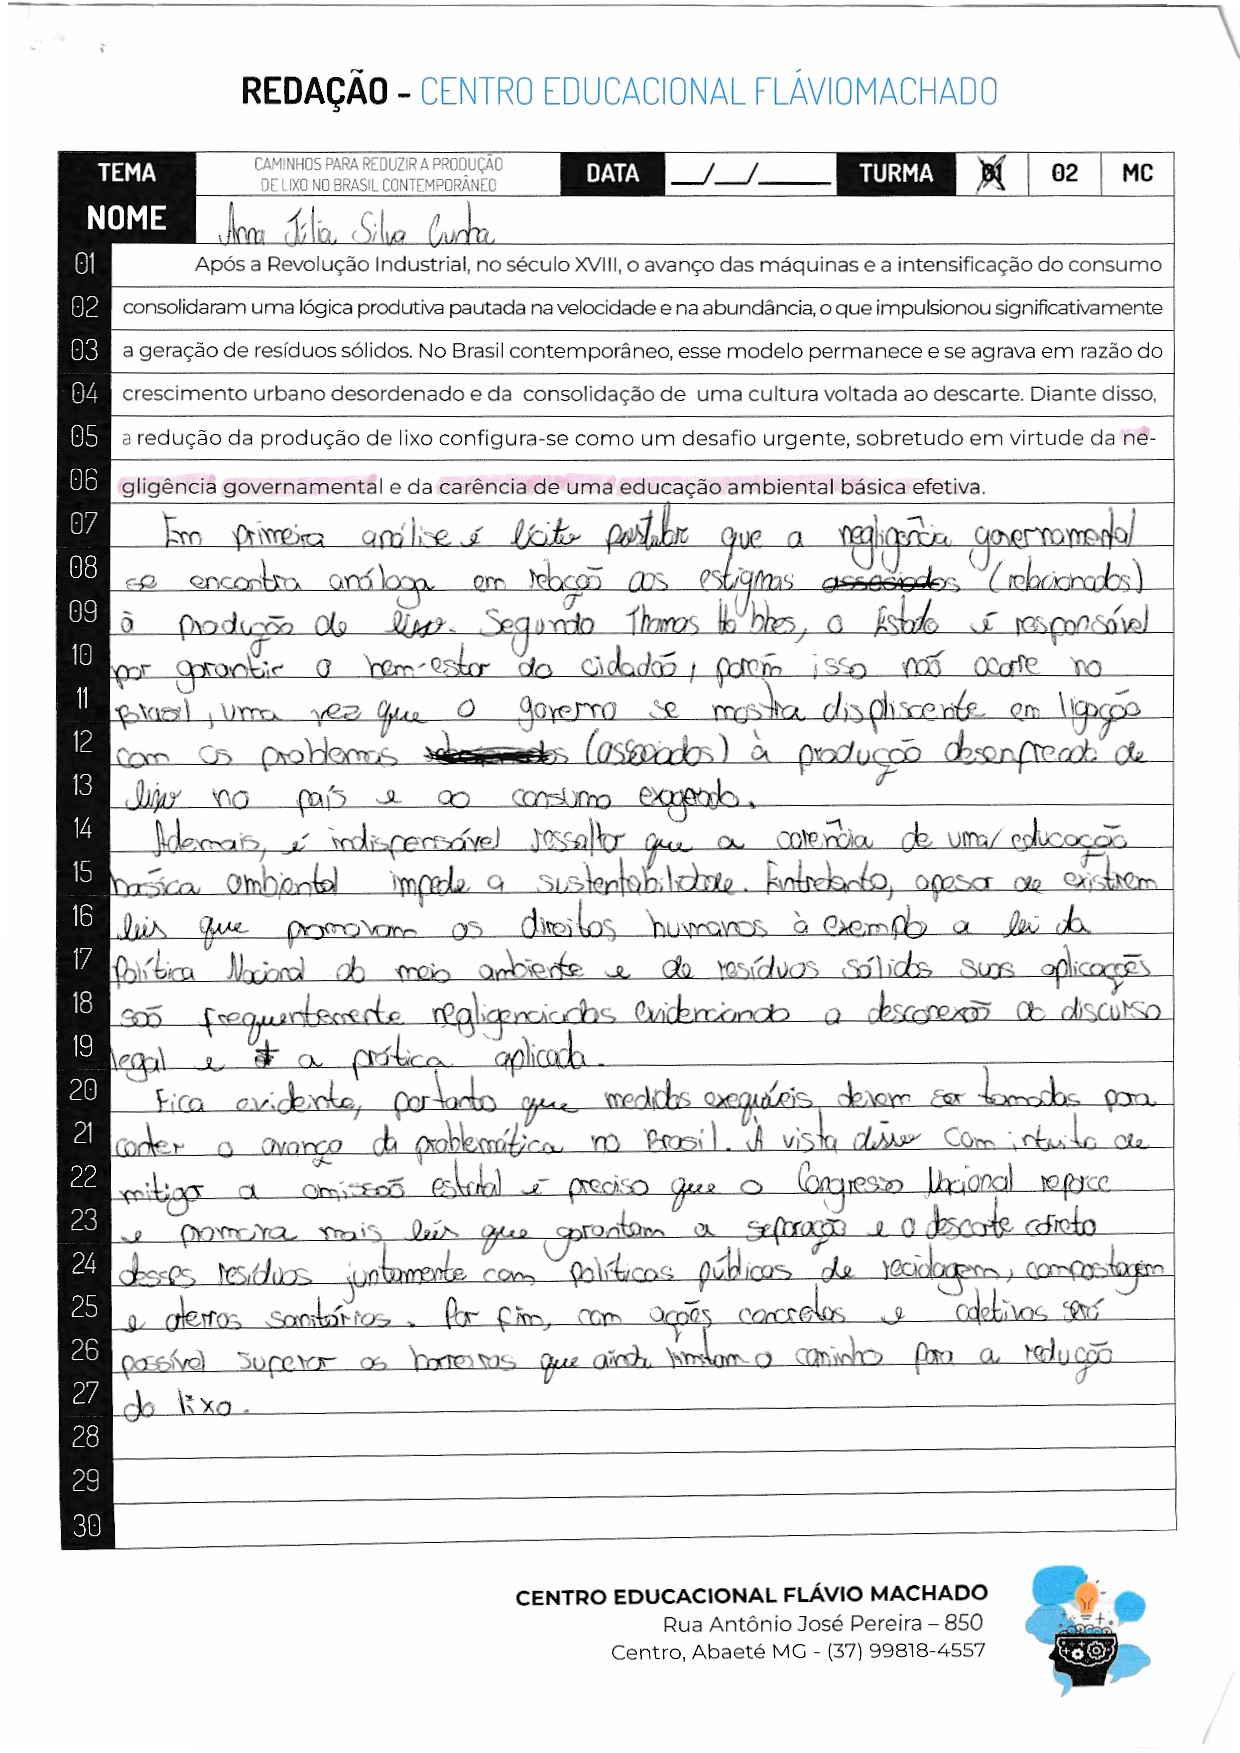 REDAÇÃO - CENTRO EDUCACIONAL FLÁVIOMACHADO
TEMA CAMINHOS PARA REDUZIR A PRODUÇÃO DE LIXO NO BRASIL CONTEMPORÂNEO DATA __/__/____ TURMA 01 02 MC
NOME Anna Júlia Silva Cunha
01 Após a Revolução Industrial, no século XVIII, o avanço das máquinas e a intensificação do consumo
02 consolidaram uma lógica produtiva pautada na velocidade e na abundância, o que impulsionou significativamente
03 a geração de resíduos sólidos. No Brasil contemporâneo, esse modelo permanece e se agrava em razão do
04 crescimento urbano desordenado e da consolidação de uma cultura voltada ao descarte. Diante disso,
05 a redução da produção de lixo configura-se como um desafio urgente, sobretudo em virtude da ne-
06 gligência governamental e da carência de uma educação ambiental básica efetiva.
07 Em primeira análise é lícito postular que a negligência governamental
08 se encontra análoga em relação aos estigmas associados (relacionados)
09 à produção de lixo. Segundo Thomas Hobbes, o Estado é responsável
10 por garantir o bem-estar do cidadão, porém isso não ocorre no
11 Brasil, uma vez que o governo se mostra displiscente em ligação
12 com os problemas (associados) à produção desenfreada de
13 lixo no país e ao consumo exagerado.
14 Ademais, é indispensável ressaltar que a carência de uma educação
15 básica ambiental impede a sustentabilidade. Entretanto, apesar de existirem
16 leis que promovam os direitos humanos à exemplo a lei da
17 Política Nacional do meio ambiente e de resíduos sólidos suas aplicações
18 são frequentemente negligenciadas evidenciando a desconexão do discurso
19 legal e a prática aplicada.
20 Fica evidente, portanto que medidas exequíveis devem ser tomadas para
21 conter o avanço da problemática no Brasil. À vista disso com intuito de
22 mitigar a omissão estatal é preciso que o Congresso Nacional reforce
23 e promova mais leis que garantam a separação e o descarte correto
24 desses resíduos juntamente com políticas públicas de reciclagem, compostagem
25 e aterros sanitários. Por fim, com ações concretas e coletivas será
26 possível superar as barreiras que ainda limitam o caminho para a redução
27 do lixo.
28
29
30
CENTRO EDUCACIONAL FLÁVIO MACHADO
Rua Antônio José Pereira – 850
Centro, Abaeté MG - (37) 99818-4557